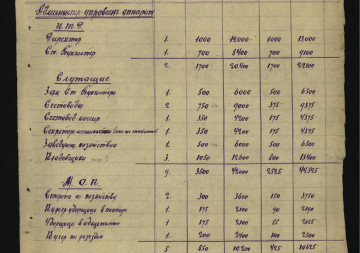 Админист-управлен. аппарат
И.Т.Р.
Директор 1. 1000 12000 1000 13000
Ст. Бухгалтер 1. 700 8400 700 9100
2. 1700 20400 1700 22100
Служащие
Зам Ст. Бухгалтера 1. 500 6000 500 6500
Счетоводы 2. 750 9000 375 9375
Счетовод кассир 1. 350 4200 175 4375
Секретарь-машинистка 1. 350 4200 175 4375
Заведующ. хозяйством 1. 500 6000 500 6500
Кладовщики 3. 1050 12600 800 13400
9. 3500 42000 2525 44525
М. О. П.
Сторожа по хозяйству 2. 300 3600 150 3750
Курьер-уборщица в конторе 1. 175 2100 90 2190
Уборщица в общежитии 1. 175 2100 55 2155
Кучер по разъездн. 1. 200 2400 100 2500
5. 850 10200 425 10625